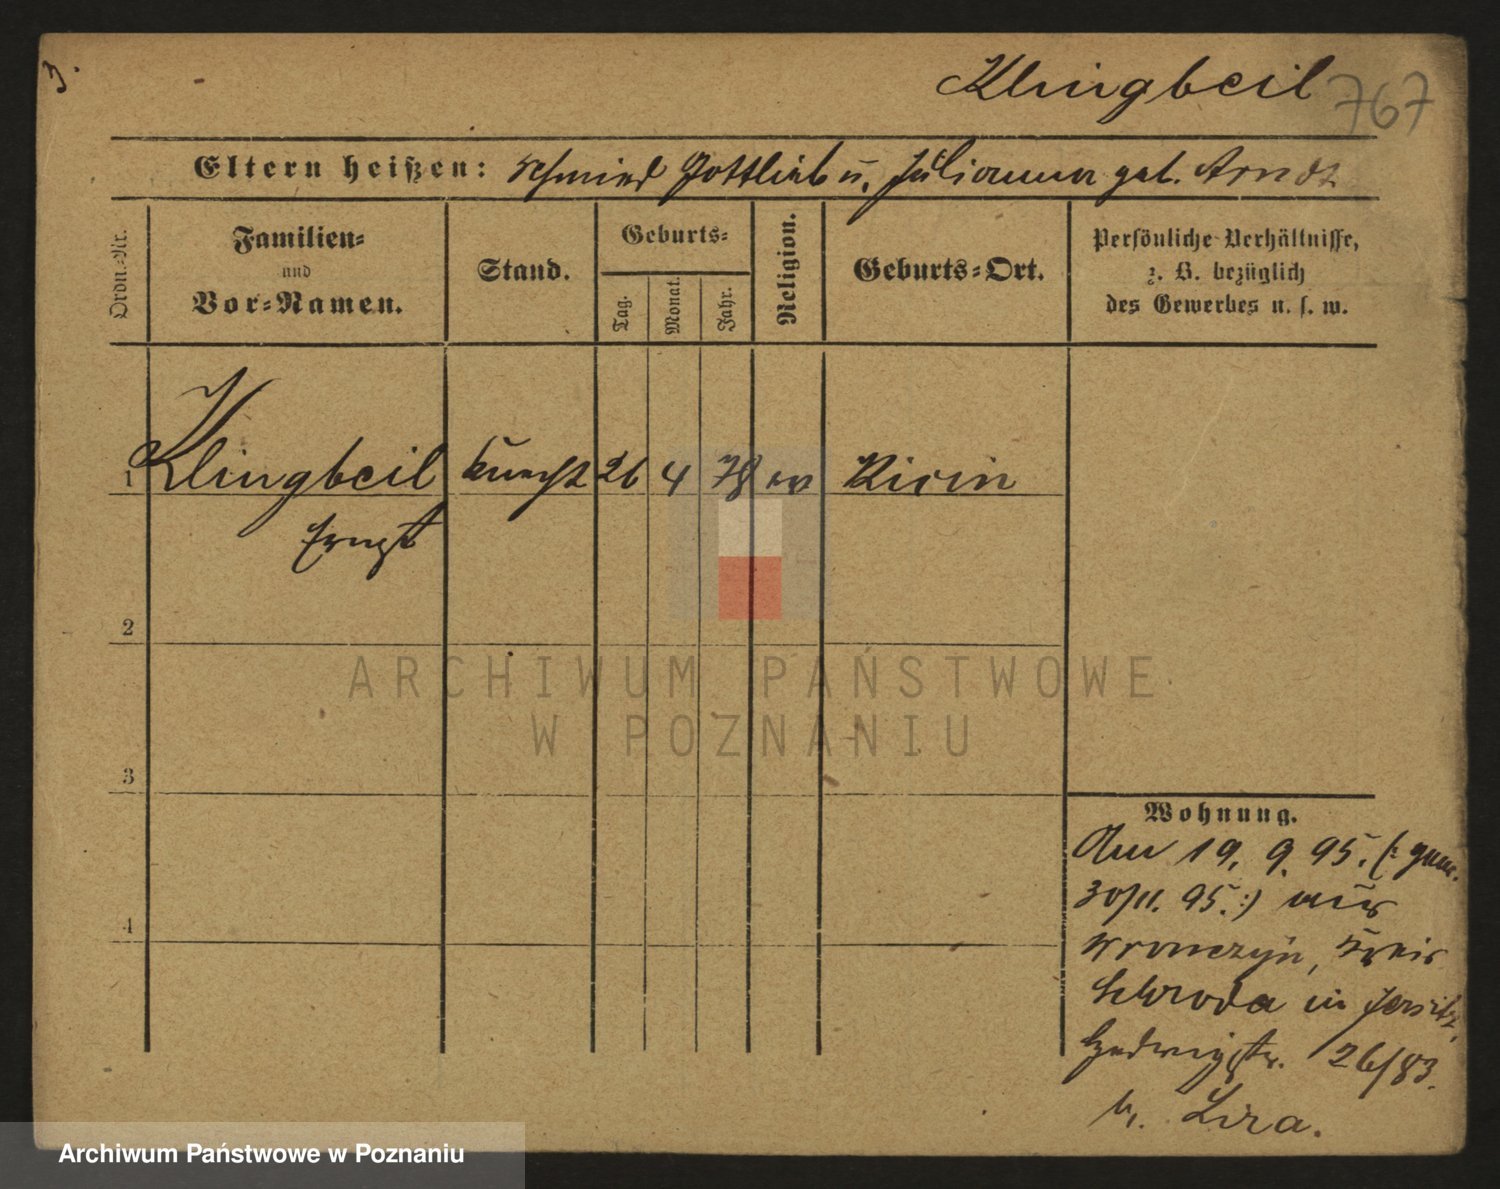 3.
Klingbeil 767
Eltern heißen: Schmied Gottlieb u. Julianna geb. Arndt
Ordn.-Nr.
Familien-
und
Vor-Namen.
Stand.
Geburts-
Tag.
Monat.
Jahr.
Religion.
Geburts-Ort.
Persönliche Verhältnisse,
z. B. bezüglich
des Gewerbes u. s. w.
1 Klingbeil Knecht 26 4 78 ev
Ernst
2
ARCHIWUM PAŃSTWOWE
W POZNANIU
3
Wohnung.
Am 19. 9. 95. (: gem.
30/11. 95. :) aus
4
Wronczyn, Kreis
Schroda in Jersitz,
Hedwigstr. 26/83.
b. Liza.
Archiwum Państwowe w Poznaniu